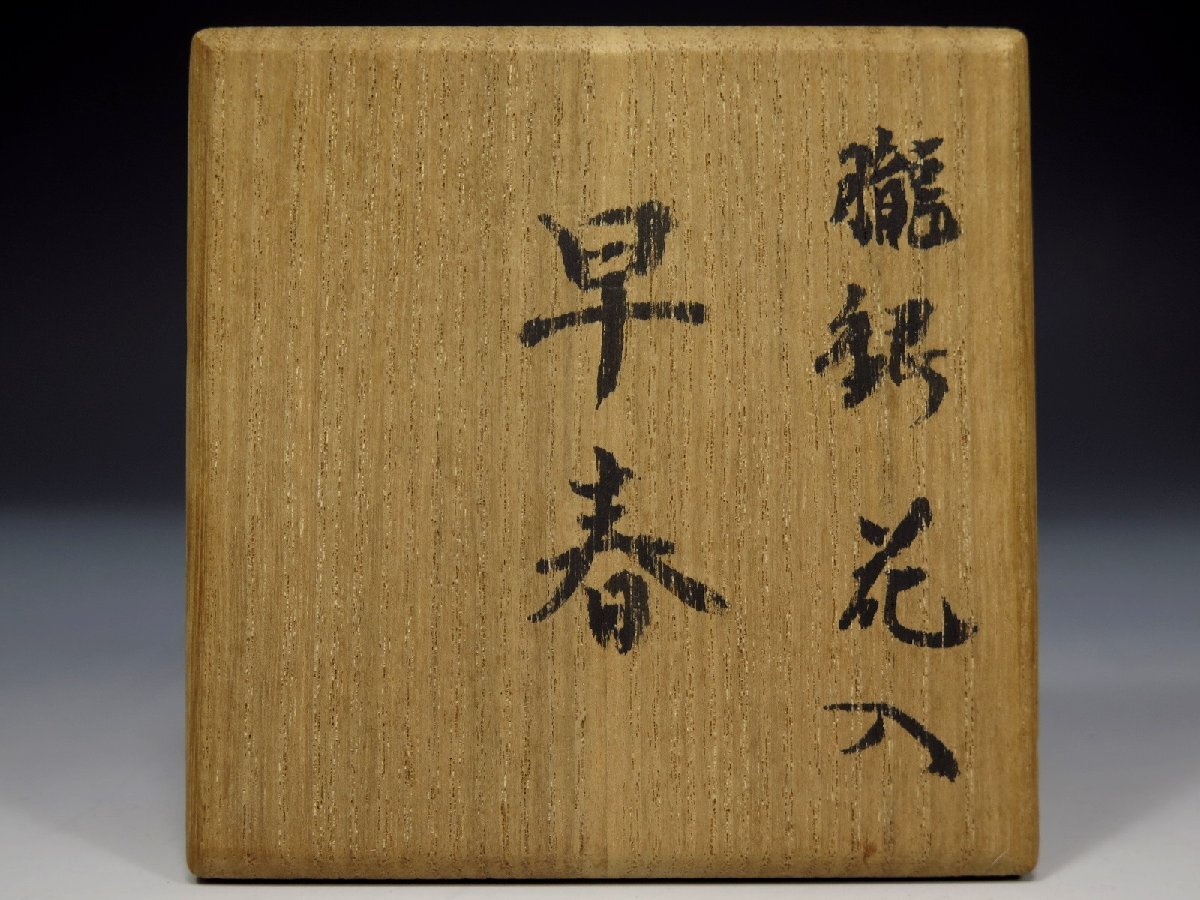 朧銀花入
早春